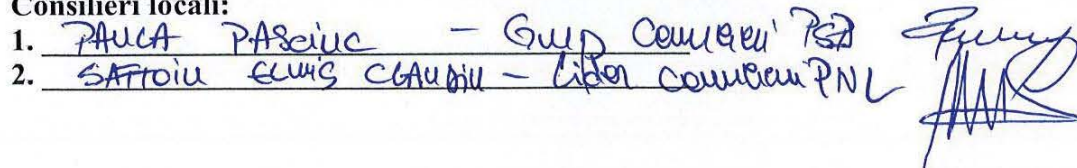 Consilieri locali:
1. PAULA PASCINC – Grup Consilieri PSD
2. SAFTOIU ELVIS CLAUDIU – Lider consilieri PNL